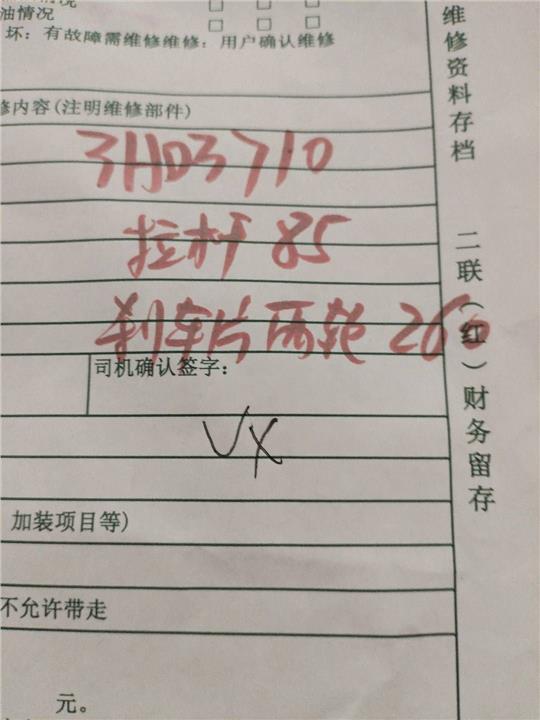 油情况
坏：有故障需维修维修；用户确认维修
修内容(注明维修部件)
3HD3710
拉杆 85
刹车片两轮 260
司机确认签字：
VX
加装项目等)
不允许带走
元。
维修资料存档
二联(红)财务留存